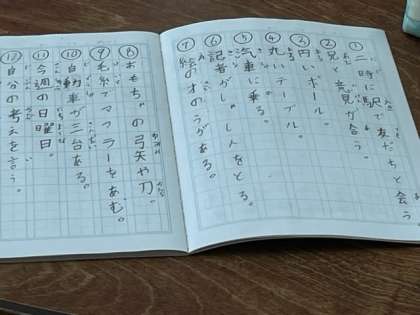 ①二時に駅で友だちと会う
②兄と意見が合う。
③円いボール。
④丸いテーブル。
⑤汽車に乗る。
⑥記者がしゃしんをとる。
⑦絵の才のうがある。
⑧おもちゃの弓矢や刀。
⑨毛糸でマフラーをあむ。
⑩自動車が三台ある。
⑪今週の日曜日。
⑫自分の考えを言う。